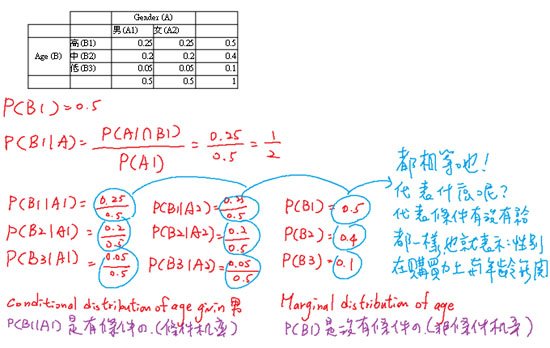 Gender (A)
男(A1) 女(A2)
Age (B) 高(B1) 0.25 0.25 0.5
中(B2) 0.2 0.2 0.4
低(B3) 0.05 0.05 0.1
0.5 0.5 1
P(B1)=0.5
P(B1|A)= P(A1∩B1)/P(A1) = 0.25/0.5 = 1/2
都相等吔!
代表什麼呢?
代表條件有沒有給
都一樣,也就表示:性別
在購買力上與年齡無關
P(B1|A1)= 0.25/0.5 P(B1|A2)= 0.25/0.5 P(B1)= 0.5
P(B2|A1)= 0.2/0.5 P(B2|A2)= 0.2/0.5 P(B2)= 0.4
P(B3|A1)= 0.05/0.5 P(B3|A2)= 0.05/0.5 P(B3)= 0.1
Conditional distribution of age given 男
P(B1|A1) 是有條件の.(條件机率)
Marginal distribution of age
P(B1) 是沒有條件の.(非條件机率)